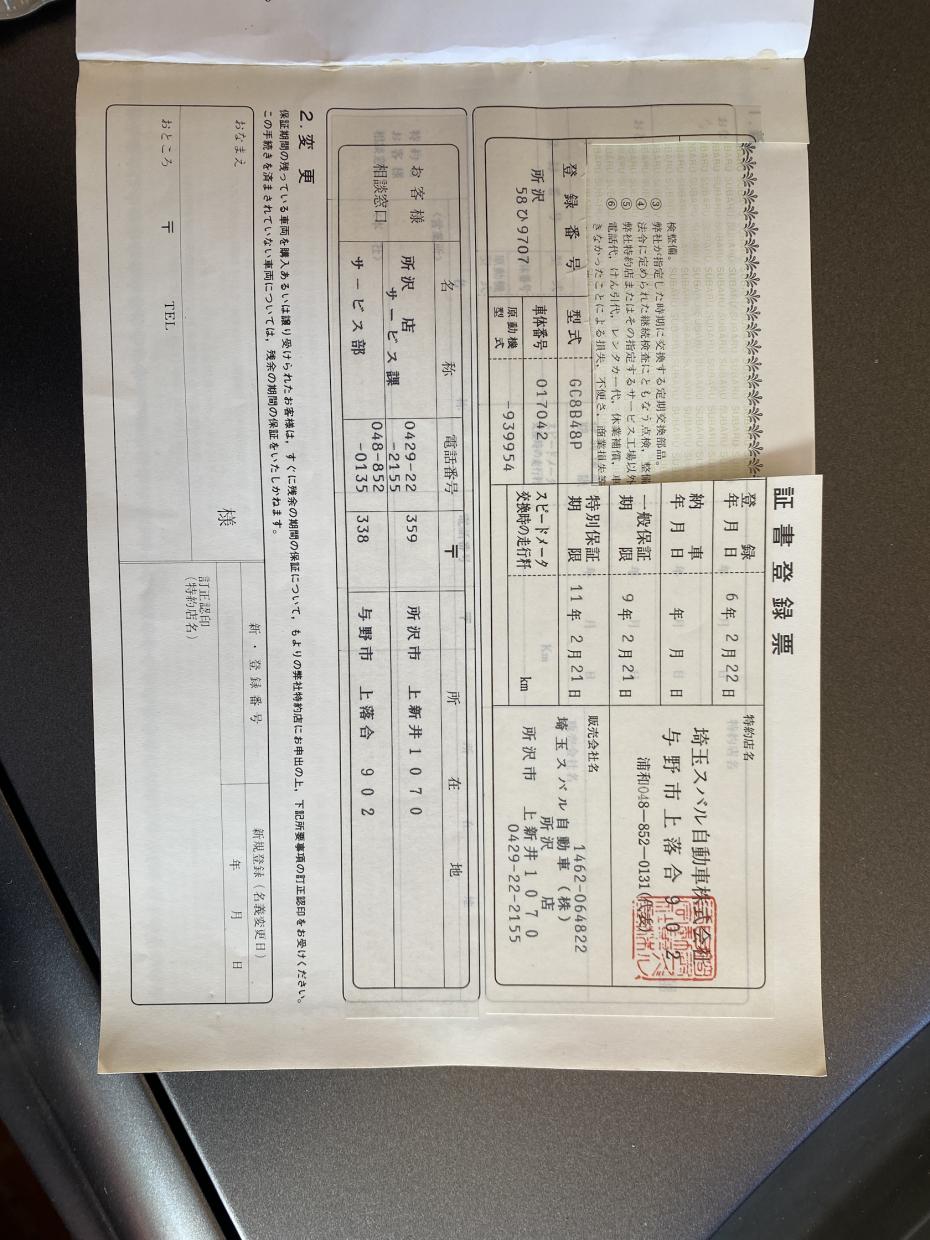 証書登録票
登録
年月日 6年 2月22日
納車
年月日 年 月 日
一般保証
期限 9年 2月21日
特別保証
期限 11年 2月21日
スピードメータ
交換時の走行粁 km
特約店名
埼玉スバル自動車株式会社
与野市上落合902
浦和048―852―0131(代表)
販売会社名
1462-064822
埼玉スバル自動車(株)
所沢店
所沢市 上新井1070
0429-22-2155
検整備。
③ 弊社が指定した時期に交換する定期交換部品。
④ 法令に定められた継続検査にともなう点検、整備
⑤ 弊社特約店またはその指定するサービス工場以外
⑥ 電話代、けん引代、レンタカー代、休業補償、
きなかったことによる損失、不便さ、商業損失等
登録番号
所沢
58ひ9707
型式 GC8B48P
車体番号 017042
原動機
型式 -939954
名称 電話番号 〒 所在地
お客様
相談窓口
所沢店
サービス課 0429-22
-2155 359 所沢市 上新井1070
サービス部 048-852
-0135 338 与野市 上落合 902
2.変更
保証期間の残っている車両を購入あるいは譲り受けられたお客様は、すぐに残余の期間の保証について、もよりの弊社特約店にお申出の上、下記所要事項の訂正認印をお受けください。
この手続きを済まされていない車両については、残余の期間の保証をいたしかねます。
おなまえ 様
おところ 〒 TEL
新・登録番号
新規登録(名義変更日)
年 月 日
訂正認印
(特約店名)